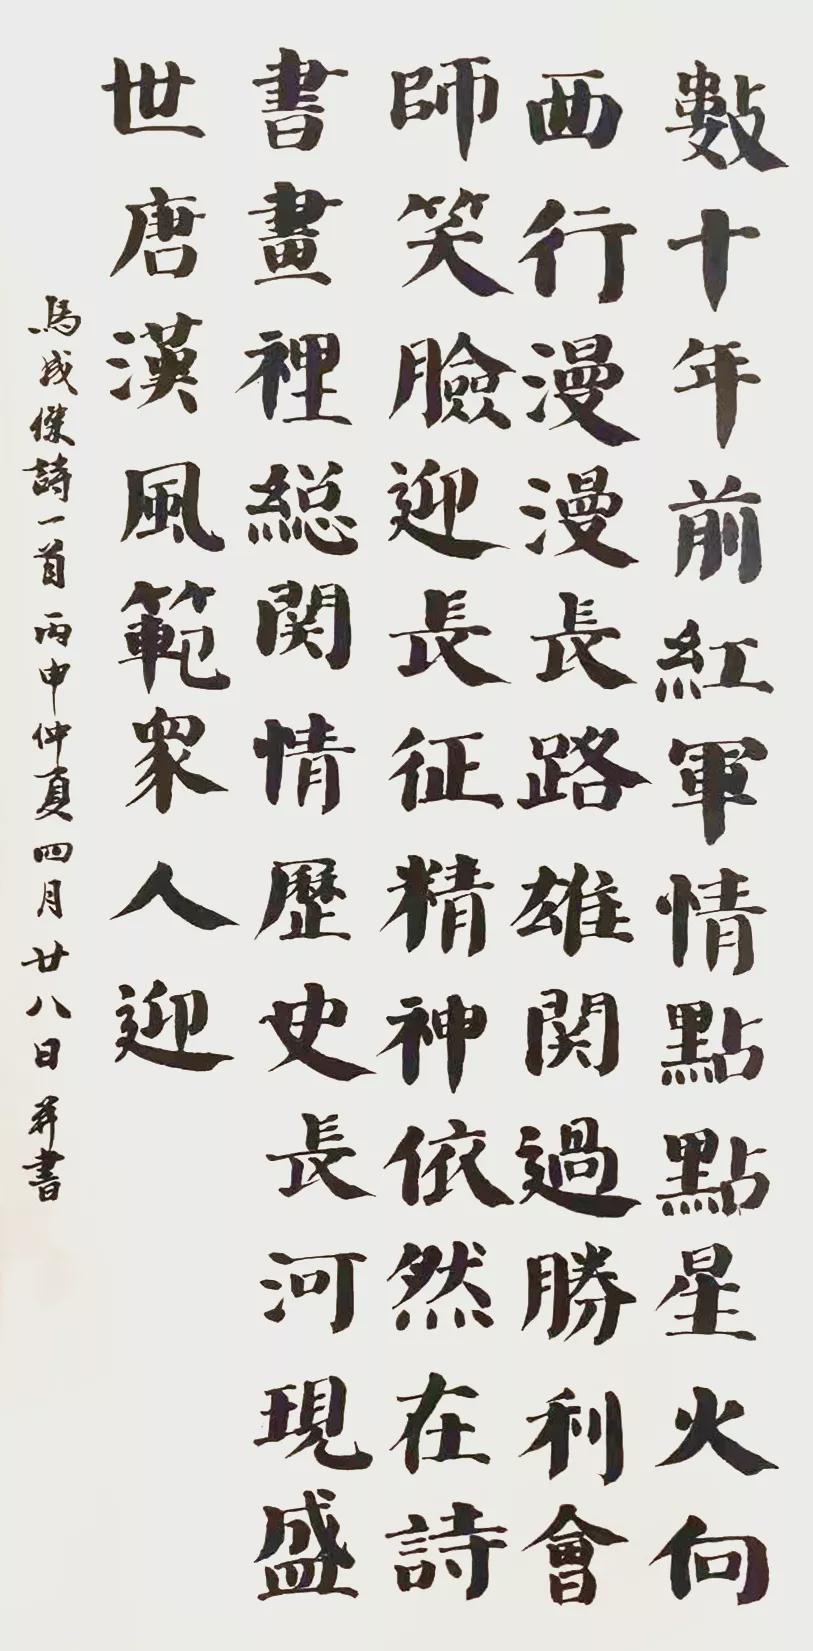 數十年前紅軍情點點星火向
西行漫漫長路雄関過勝利會
師笑臉迎長征精神依然在詩
書畫裡総関情歷史長河現盛
世唐漢風範眾人迎
馬成傑詩一首丙申仲夏四月廿八日并書